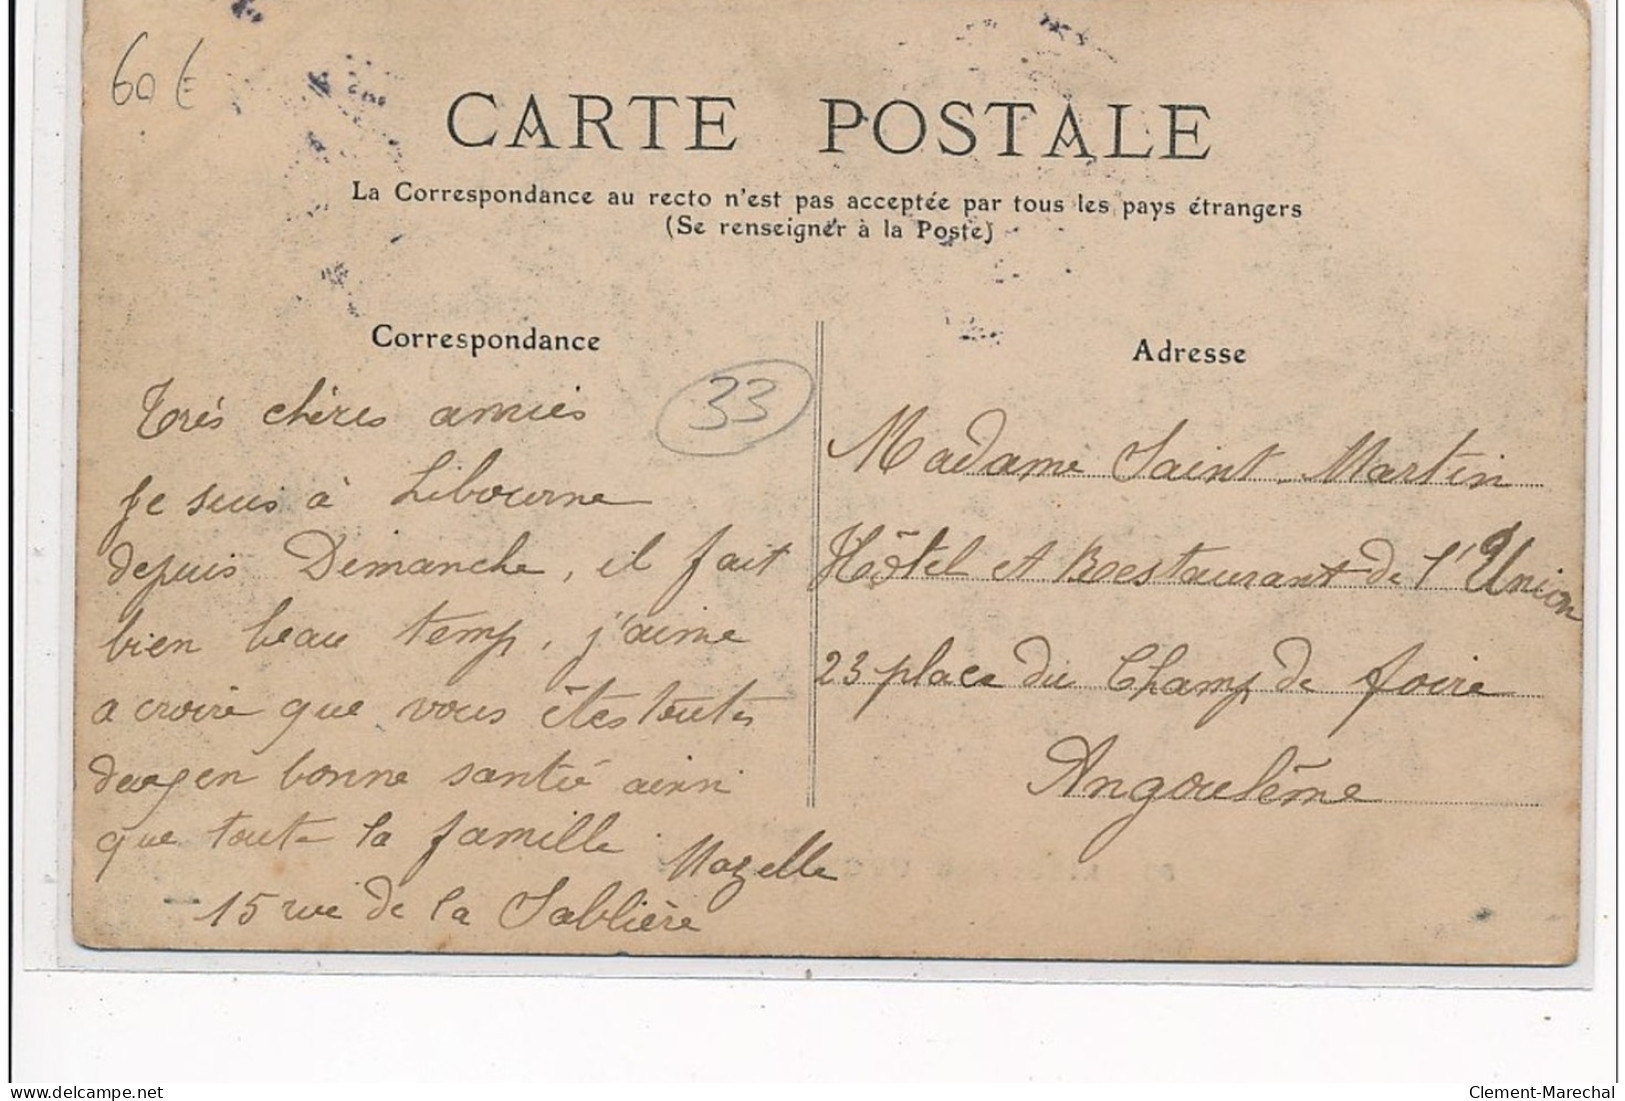 60 €
CARTE POSTALE
La Correspondance au recto n'est pas acceptée par tous les pays étrangers
(Se renseigner à la Poste)
Correspondance
33
Très chères amies
Je suis à Libourne
depuis Dimanche, il fait
bien beau temp, j'aime
a croire que vous êtes toutes
deux en bonne santé ainsi
que toute la famille
Mazelle
15 rue de la Sablière
Adresse
Madame Saint-Martin
Hôtel et Restaurant de l'Union
23 place du Champ de foire
Angoulême
delcampe.net
Clement-Marechal